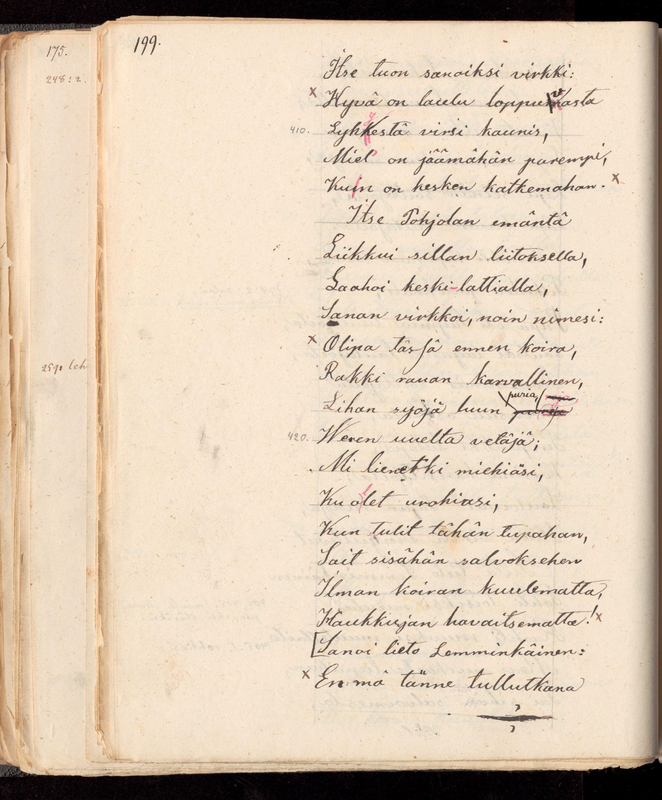 175.
248:2.
259. leh
199.
Itse tuon sanoiksi virkki:
x Hyvä on laulu loppuvasta
410. Lyhyestä virsi kaunis,
Miel' on jäämähän parempi,
Kuin on kesken katkemahan. x
Itse Pohjolan emäntä
Liikkui sillan liitoksella,
Laahoi keski-lattialla,
Sanan virkkoi, noin nimesi:
x Olipa tässä ennen koira,
Rakki rauan karvallinen,
Lihan syöjä luun puria,
420. Weren uuelta vetäjä;
Mi lienetki miehiäsi,
Ku olet urohiasi,
Kun tulit tähän tupahan,
Sait sisähän salvoksehen
Ilman koiran kuulematta,
Haukkujan havaitsematta! x
[Sanoi lieto Lemminkäinen:
x En mä tänne tullutkana